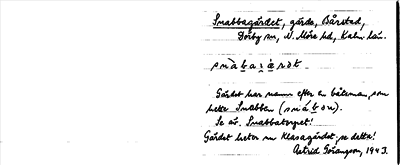 Snabbagärdet, gärde, Bårstad,
Dörby sn, N. Möre hd, Kalm. län.
Gärdet har namn efter en båtsman, som
hette Snabben
Se äv. Snabbatorpet!
Gärdet heter nu Klasagärdet, se detta!
Astrid Göransson, 1943.